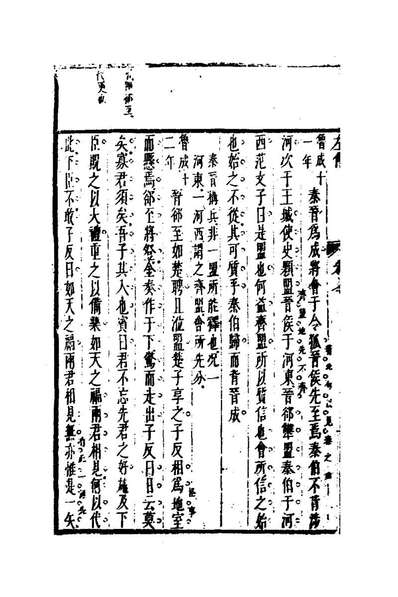 左傳
魯成十
一年
秦晉為成將會于令狐晉侯先至焉秦伯不肯涉
河次于王城使史顆盟晉侯于河東晉郤犫盟秦伯于河
西范文子曰是盟也何益齊盟所以質信也會所信之始
也始之不從其可質乎秦伯歸而背晉成
秦晉稱兵非一盟所能釋也況一
河東一河西謂之齊盟會所先分
魯成十
二年
晉郤至如楚聘且涖盟楚子享之子反相為地室
而懸焉郤至將登金奏作于下驚而走出子反曰日云莫
矣寡君須矣吾子其入也賓曰君不忘先君之好施及下
臣貺之以大禮重之以備樂如天之福兩君相見何以代
此下臣不敢子反曰如天之福兩君相見無亦惟是一矢